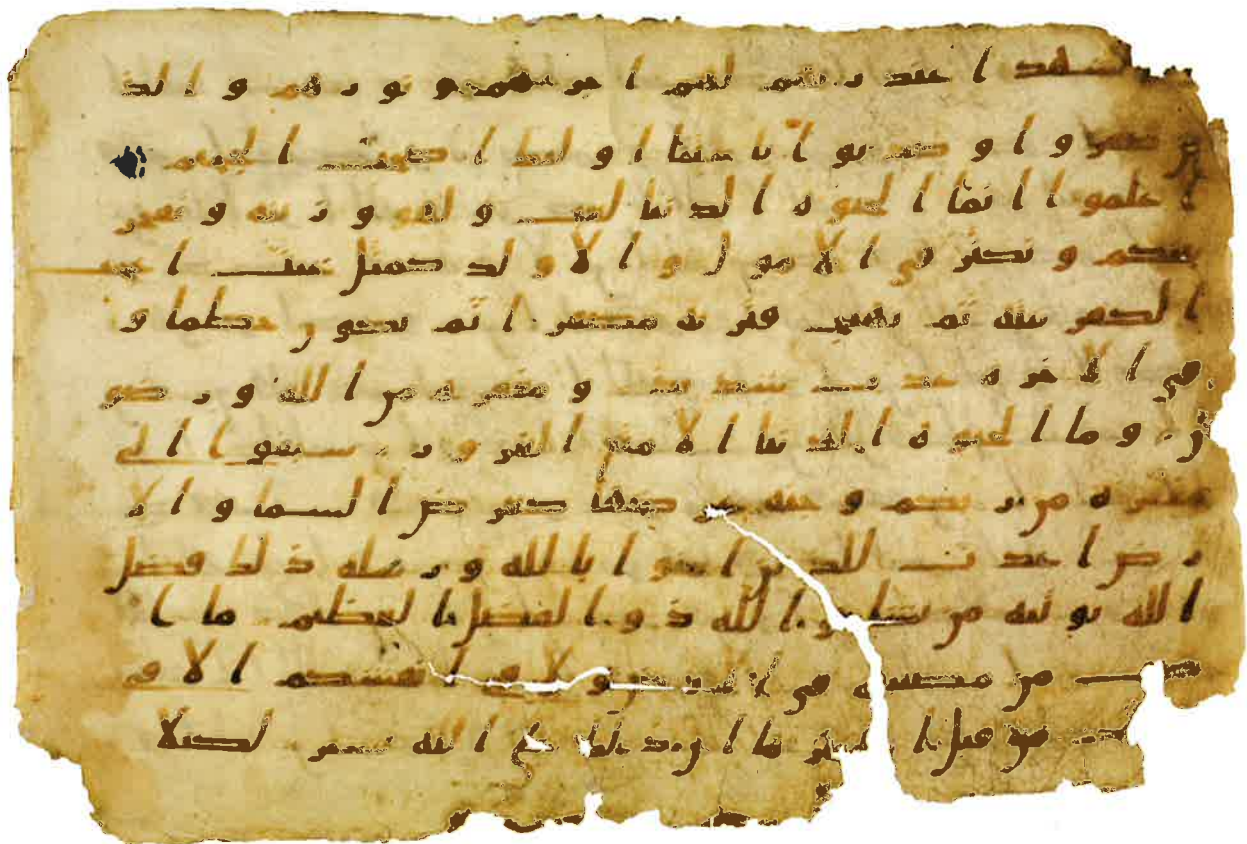 الشهدا عند ربهم لهم اجرهم ونورهم والذ
ين كفروا وكذبوا بايتنا اوليك اصحب الجحيم
اعلموا انما الحيوة الدنيا لعب ولهو وزينة وتفخر
بينكم وتكثر في الامول والاولد كمثل غيث اعجب
الكفر نبته ثم يهيج فتريه مصفرا ثم يكون حطما و
في الاخرة عذب شديد ومغفرة من الله ورضو
ن وما الحيوة الدنيا الا متع الغرور سبقوا الى
مغفرة من ربكم وجنة عرضها كعرض السما والا
رض اعدت للذين امنوا بالله ورسله ذلك فضل
الله يوتيه من يشا والله ذو الفضل العظيم ما ا
صب من مصيبة في الارض ولا في انفسكم الا في
كتب من قبل ان نبراها ان ذلك على الله يسير لكيلا